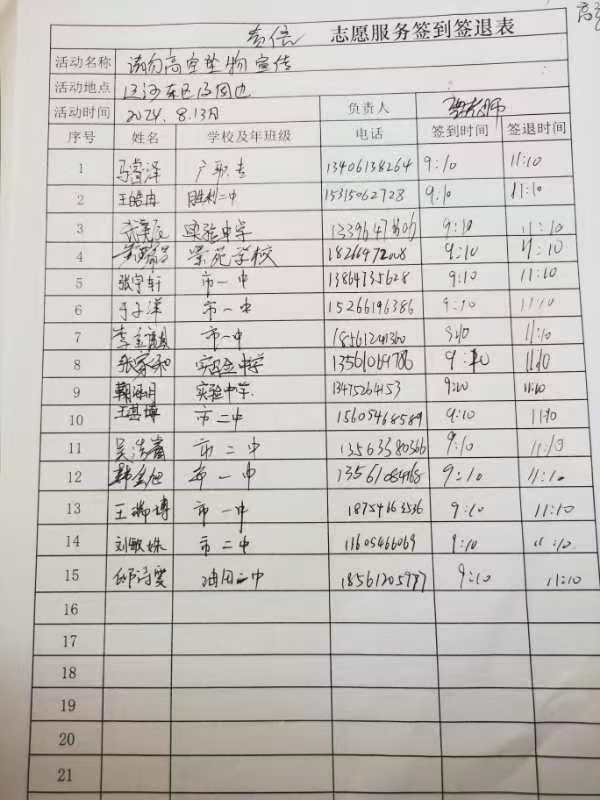 志愿服务签到签退表
活动名称 请勿高空坠物宣传
活动地点
活动时间 2024.8.13日 负责人
序号 姓名 学校及年班级 电话 签到时间 签退时间
1 马睿泽 广职专 13406138264 9:10 11:10
2 王皓冉 胜利二中 15315062728 9:10 11:10
3 实验中学 9:10 11:10
4 紫苑学校 9:10 11:10
5 张宇轩 市一中 13864735628 9:10 11:10
6 于子洋 市一中 15266196386 9:10 11:10
7 市一中 18561241360 11:10
8 张家和 实验中学 13561064786 11:10
9 实验中学 13475264153 9:10 11:10
10 王湛博 市二中 15605468589 9:10 11:10
11 市二中 13563380366 9:10 11:10
12 市一中 9:10 11:10
13 王瑞博 市一中 18754663536 9:10 11:10
14 刘敏姝 市二中 11605466069 9:10 11:10
15 油田二中 18561205987 9:10 11:10
16
17
18
19
20
21